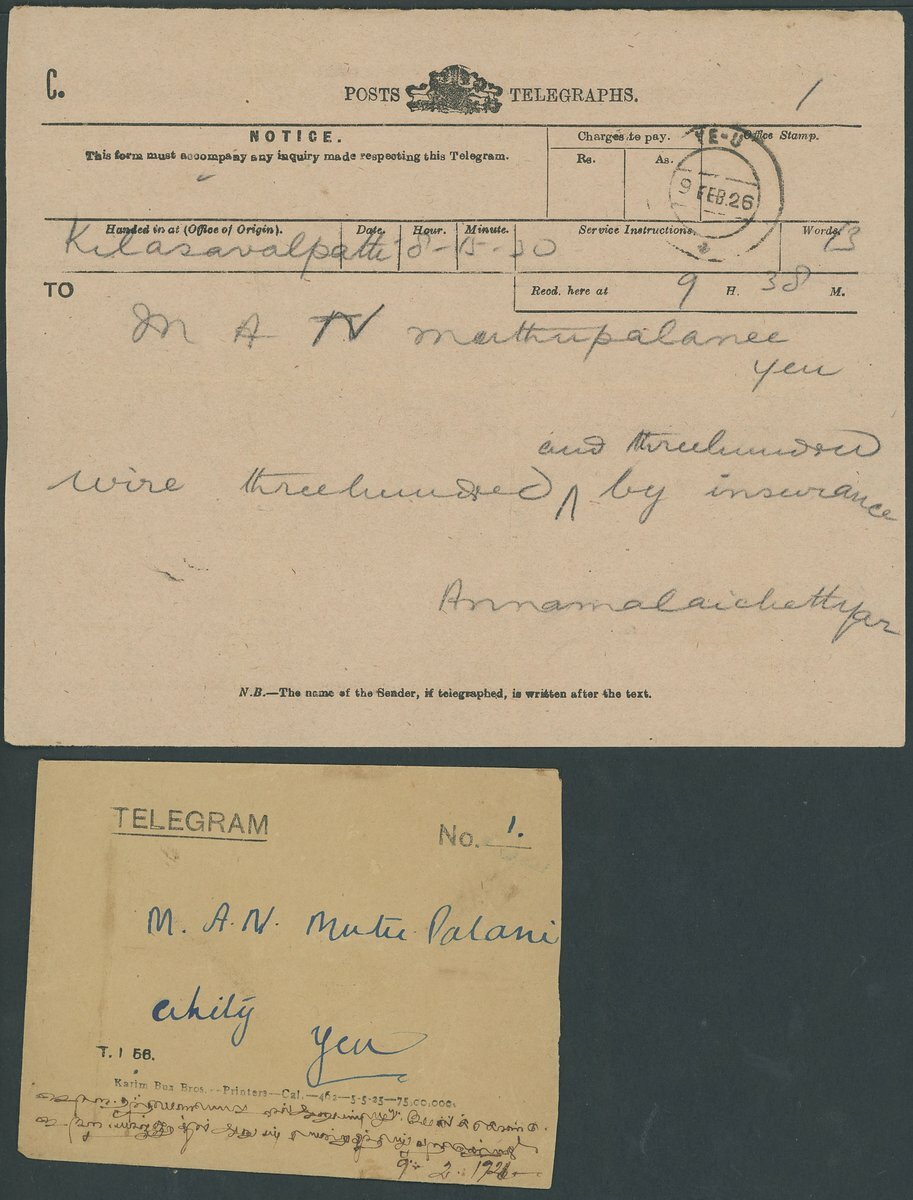 C.
POSTS TELEGRAPHS.
1
NOTICE.
This form must accompany any inquiry made respecting this Telegram.
Charges to pay.
Rs. As.
Office Stamp.
YE-U
9 FEB.26
Handed in at (Office of Origin). Date. Hour. Minute. Service Instructions. Words.
Kilasavalpatti 8-15-30 13
TO
Recd. here at 9 H. 38 M.
M A N muthupalanee
yeu
and threehundred
wire threehundred by insurance
Annamalaichettyar
N.B.—The name of the Sender, if telegraphed, is written after the text.
TELEGRAM
No. 1.
M. A. N. Mutu Palani
chity
Yeu
T. I 56.
Karim Bux Bros.—Printers—Cal.—462—5-5-25—75,00,000.
9. 2. 1926